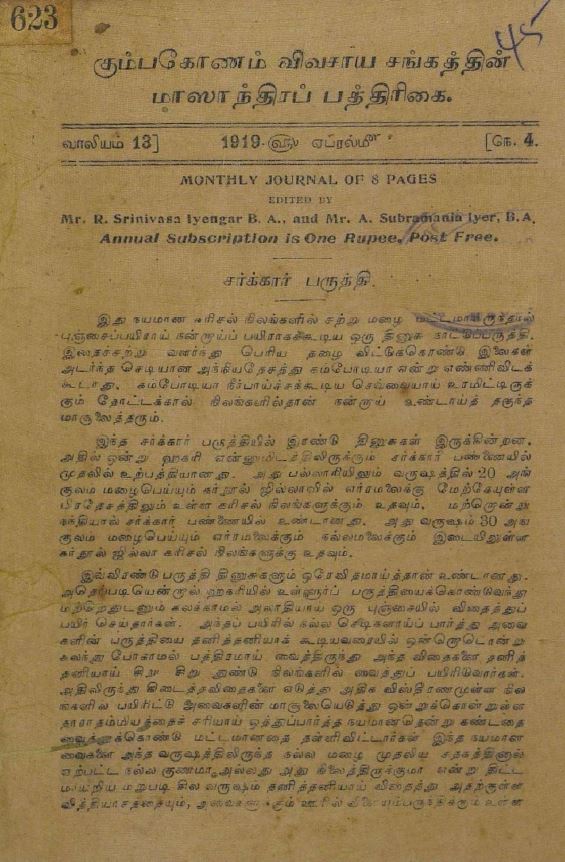 623
45
கும்பகோணம் விவசாய சங்கத்தின்
மாஸாந்திரப் பத்திரிகை.
வாலியம் 13] 1919-௵ ஏப்ரல்௴ [நெ. 4.
MONTHLY JOURNAL OF 8 PAGES
EDITED BY
Mr. R. Srinivasa Iyengar B. A., and Mr. A. Subramania Iyer, B.A.
Annual Subscription is One Rupee, Post Free.
சர்க்கார் பருத்தி.
இது நயமான கரிசல் நிலங்களில் சற்று மழை மட்டமாகருந்தால்
புஞ்சைப்பயிராய் நன்றாய்ப் பயிராகக்கூடிய ஒரு தினுசு நாட்டுப்பருத்தி.
இதைச்சற்று வளர்ந்து பெரிய தழை விட்டுக்கொண்டு இலைகள்
அடர்ந்த செடியான அந்நியதேசத்து கம்போடியா என்று எண்ணிவிடக்
கூடாது. கம்போடியா நீர்பாய்ச்சக்கூடிய செவ்வையாய் உரமிட்டிருக்
கும் தோட்டக்கால் நிலங்களில்தான் நன்றாய் உண்டாய்த் தகுந்த
மாசூலைத்தரும்.
இந்த சர்க்கார் பருத்தியில் இரண்டு தினுசுகள் இருக்கின்றன.
அதில் ஒன்று ஹகரி என்னுமிடத்திலிருக்கும் சர்க்கார் பண்ணையில்
முதலில் உற்பத்தியானது. அது பல்லாரியிலும் வருஷத்தில் 20 அங்
குலம் மழைபெய்யும் கர்நூல் ஜில்லாவில் எர்ரமலைக்கு மேற்கேயுள்ள
பிரதேசத்திலும் உள்ள கரிசல் நிலங்களுக்கும் உதவும். மற்றொன்று
நந்தியால் சர்க்கார் பண்ணையில் உண்டானது. அது வருஷம் 30 அங்
குலம் மழைபெய்யும் எர்ரமலைக்கும் நல்லமலைக்கும் இடையிலுள்ள
கர்நூல் ஜில்லா கரிசல் நிலங்களுக்கு உதவும்.
இவ்விரண்டு பருத்தி தினுசுகளும் ஒரேவிதமாய்த்தான் உண்டானது.
அதெப்படியென்றால் ஹகரியில் உள்ளூர்ப் பருத்தியைக்கொண்டுவந்து
மற்றெதுடனும் கலக்காமல் அலாதியாய் ஒரு புஞ்சையில் விதைத்துப்
பயிர் செய்தார்கள். அந்தப் பயிரில் நல்ல செடிகளாய்ப் பார்த்து அவை
களின் பருத்தியை தனித்தனியாக கூடியவரையில் ஒன்றொடொன்று
கலந்து போகாமல் பத்திரமாய் வைத்திருந்து அந்த விதைகளை தனித்
தனியாய் சிறு சிறு துண்டு நிலங்களில் வைத்துப் பயிரிடுவார்கள்.
அதிலிருந்து கிடைத்தவிதைகளை எடுத்து அதிக விஸ்தீரணமுள்ள நில
ங்களில் பயிரிட்டு அவைகளின் மாசூலையெடுத்து ஒன்றுக்கொன்றுள்ள
தாரதம்மியத்தைச் சரியாய் ஒத்துப்பார்த்த நயமானதென்று கண்டதை
வைத்துக்கொண்டு மட்டமானதை தள்ளிவிட்டார்கள் இந்த நயமான
வைகளை அந்த வருஷத்திலிருந்த நல்ல மழை முதலிய சதகத்தினால்
ஏற்பட்ட நல்ல குணமா, அல்லது அது நிலைத்திருக்குமா என்று திட்ட
மாயறிய மறுபடி சில வருஷம் தனித்தனியாய் விதைத்து அதற்குள்ள
வித்தியாசத்தையும், அவைகளுக்கும் ஊரில் உள்ள